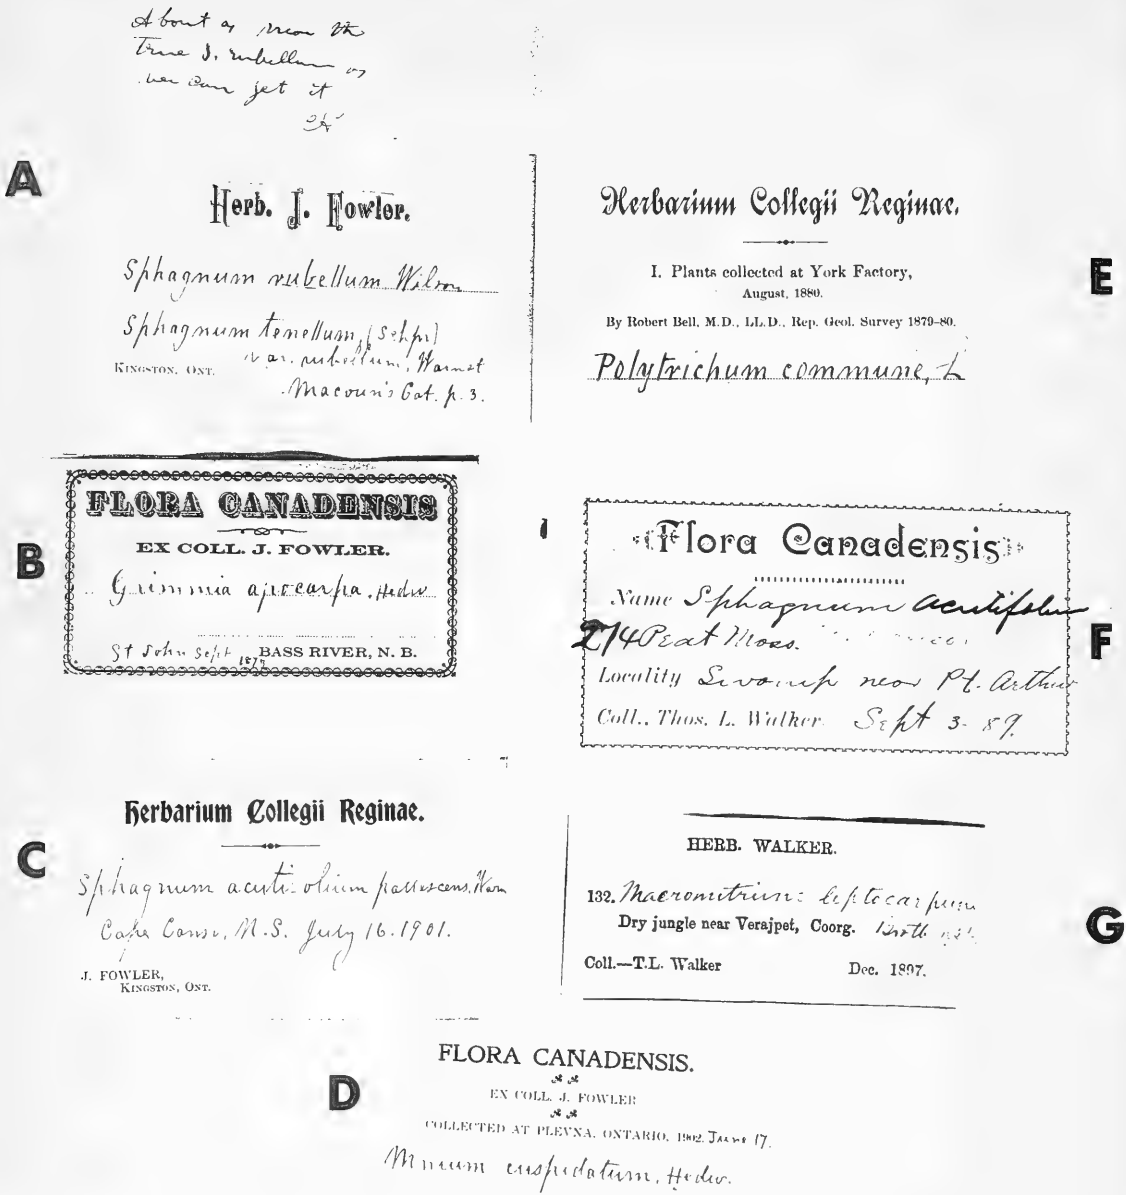 About as near the
true S. rubellum as
we can get it
A
Herb. J. Fowler.
Sphagnum rubellum Wilson
Sphagnum tenellum, (Schpr)
var. rubellum, Warnst
KINGSTON, ONT.
Macoun's Cat. p. 3.
B
FLORA CANADENSIS
EX COLL. J. FOWLER.
Grimmia apocarpa. Hedw
St John Sept 187 BASS RIVER, N. B.
C
Herbarium Collegii Reginae.
Sphagnum acutifolium pallescens. Warn
Cape Canso, N.S. July 16. 1901.
J. FOWLER,
KINGSTON, ONT.
D
FLORA CANADENSIS.
EX COLL. J. FOWLER
COLLECTED AT PLEVNA, ONTARIO, 1902. June 17.
Mnium cuspidatum, Hedw.
E
Herbarium Collegii Reginae.
I. Plants collected at York Factory,
August, 1880.
By Robert Bell, M.D., LL.D., Rep. Geol. Survey 1879-80.
Polytrichum commune, L
F
Flora Canadensis
Name Sphagnum acutifolium
274 Peat Moss.
Locality Swamp near Pt. Arthur
Coll., Thos. L. Walker. Sept 3- 89.
G
HERB. WALKER.
132. Macromitrium leptocarpum
Dry jungle near Verajpet, Coorg. Broth
Coll.—T.L. Walker Dec. 1897.